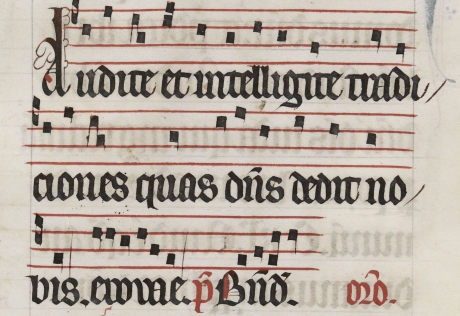 Audite et intelligite tradi/
ciones quas dñs dedit no/
vis. evovae. p̃s Bñd̃. or̃o.